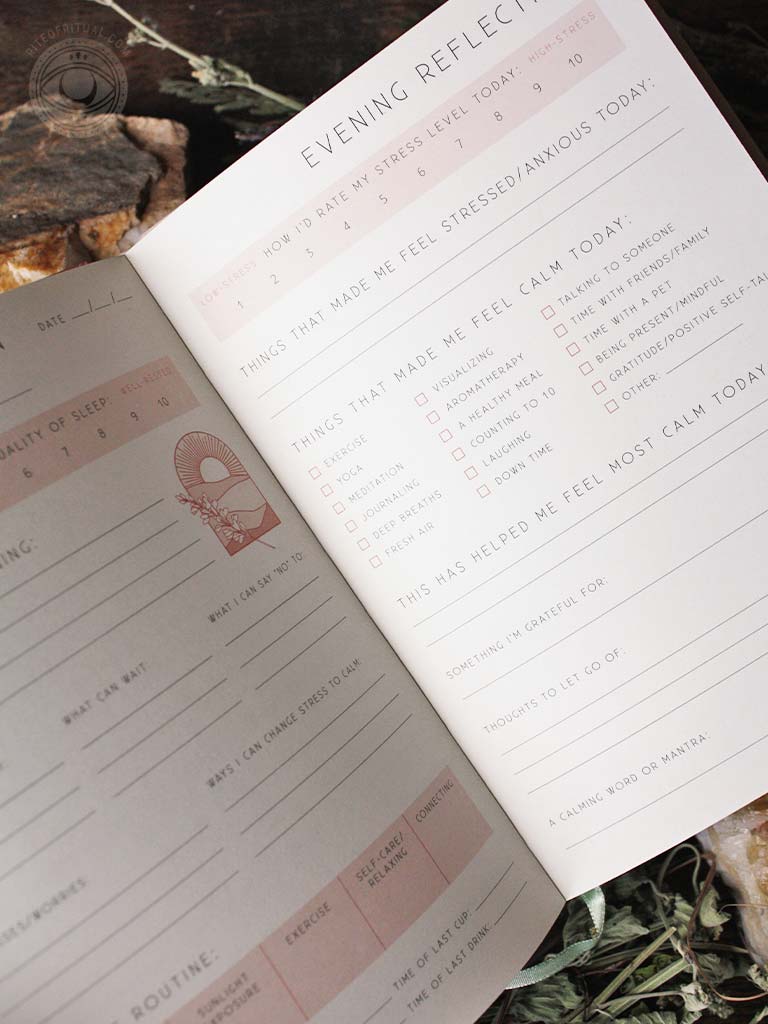 RITEOFRITUAL.COM
DATE __/__/__
QUALITY OF SLEEP: WELL-RESTED
6 7 8 9 10
WHAT I CAN SAY "NO" TO:
WHAT CAN WAIT:
WAYS I CAN CHANGE STRESS TO CALM:
ROUTINE:
SUNLIGHT
EXPOSURE
EXERCISE
SELF-CARE/
RELAXING
CONNECTING
TIME OF LAST CUP:
TIME OF LAST DRINK:
EVENING REFLECT
LOW-STRESS HOW I'D RATE MY STRESS LEVEL TODAY: HIGH-STRESS
1 2 3 4 5 6 7 8 9 10
THINGS THAT MADE ME FEEL STRESSED/ANXIOUS TODAY:
THINGS THAT MADE ME FEEL CALM TODAY:
EXERCISE
YOGA
MEDITATION
JOURNALING
DEEP BREATHS
FRESH AIR
VISUALIZING
AROMATHERAPY
A HEALTHY MEAL
COUNTING TO 10
LAUGHING
DOWN TIME
TALKING TO SOMEONE
TIME WITH FRIENDS/FAMILY
TIME WITH A PET
BEING PRESENT/MINDFUL
GRATITUDE/POSITIVE SELF-TAL
OTHER:
THIS HAS HELPED ME FEEL MOST CALM TODAY
SOMETHING I'M GRATEFUL FOR:
THOUGHTS TO LET GO OF:
A CALMING WORD OR MANTRA: